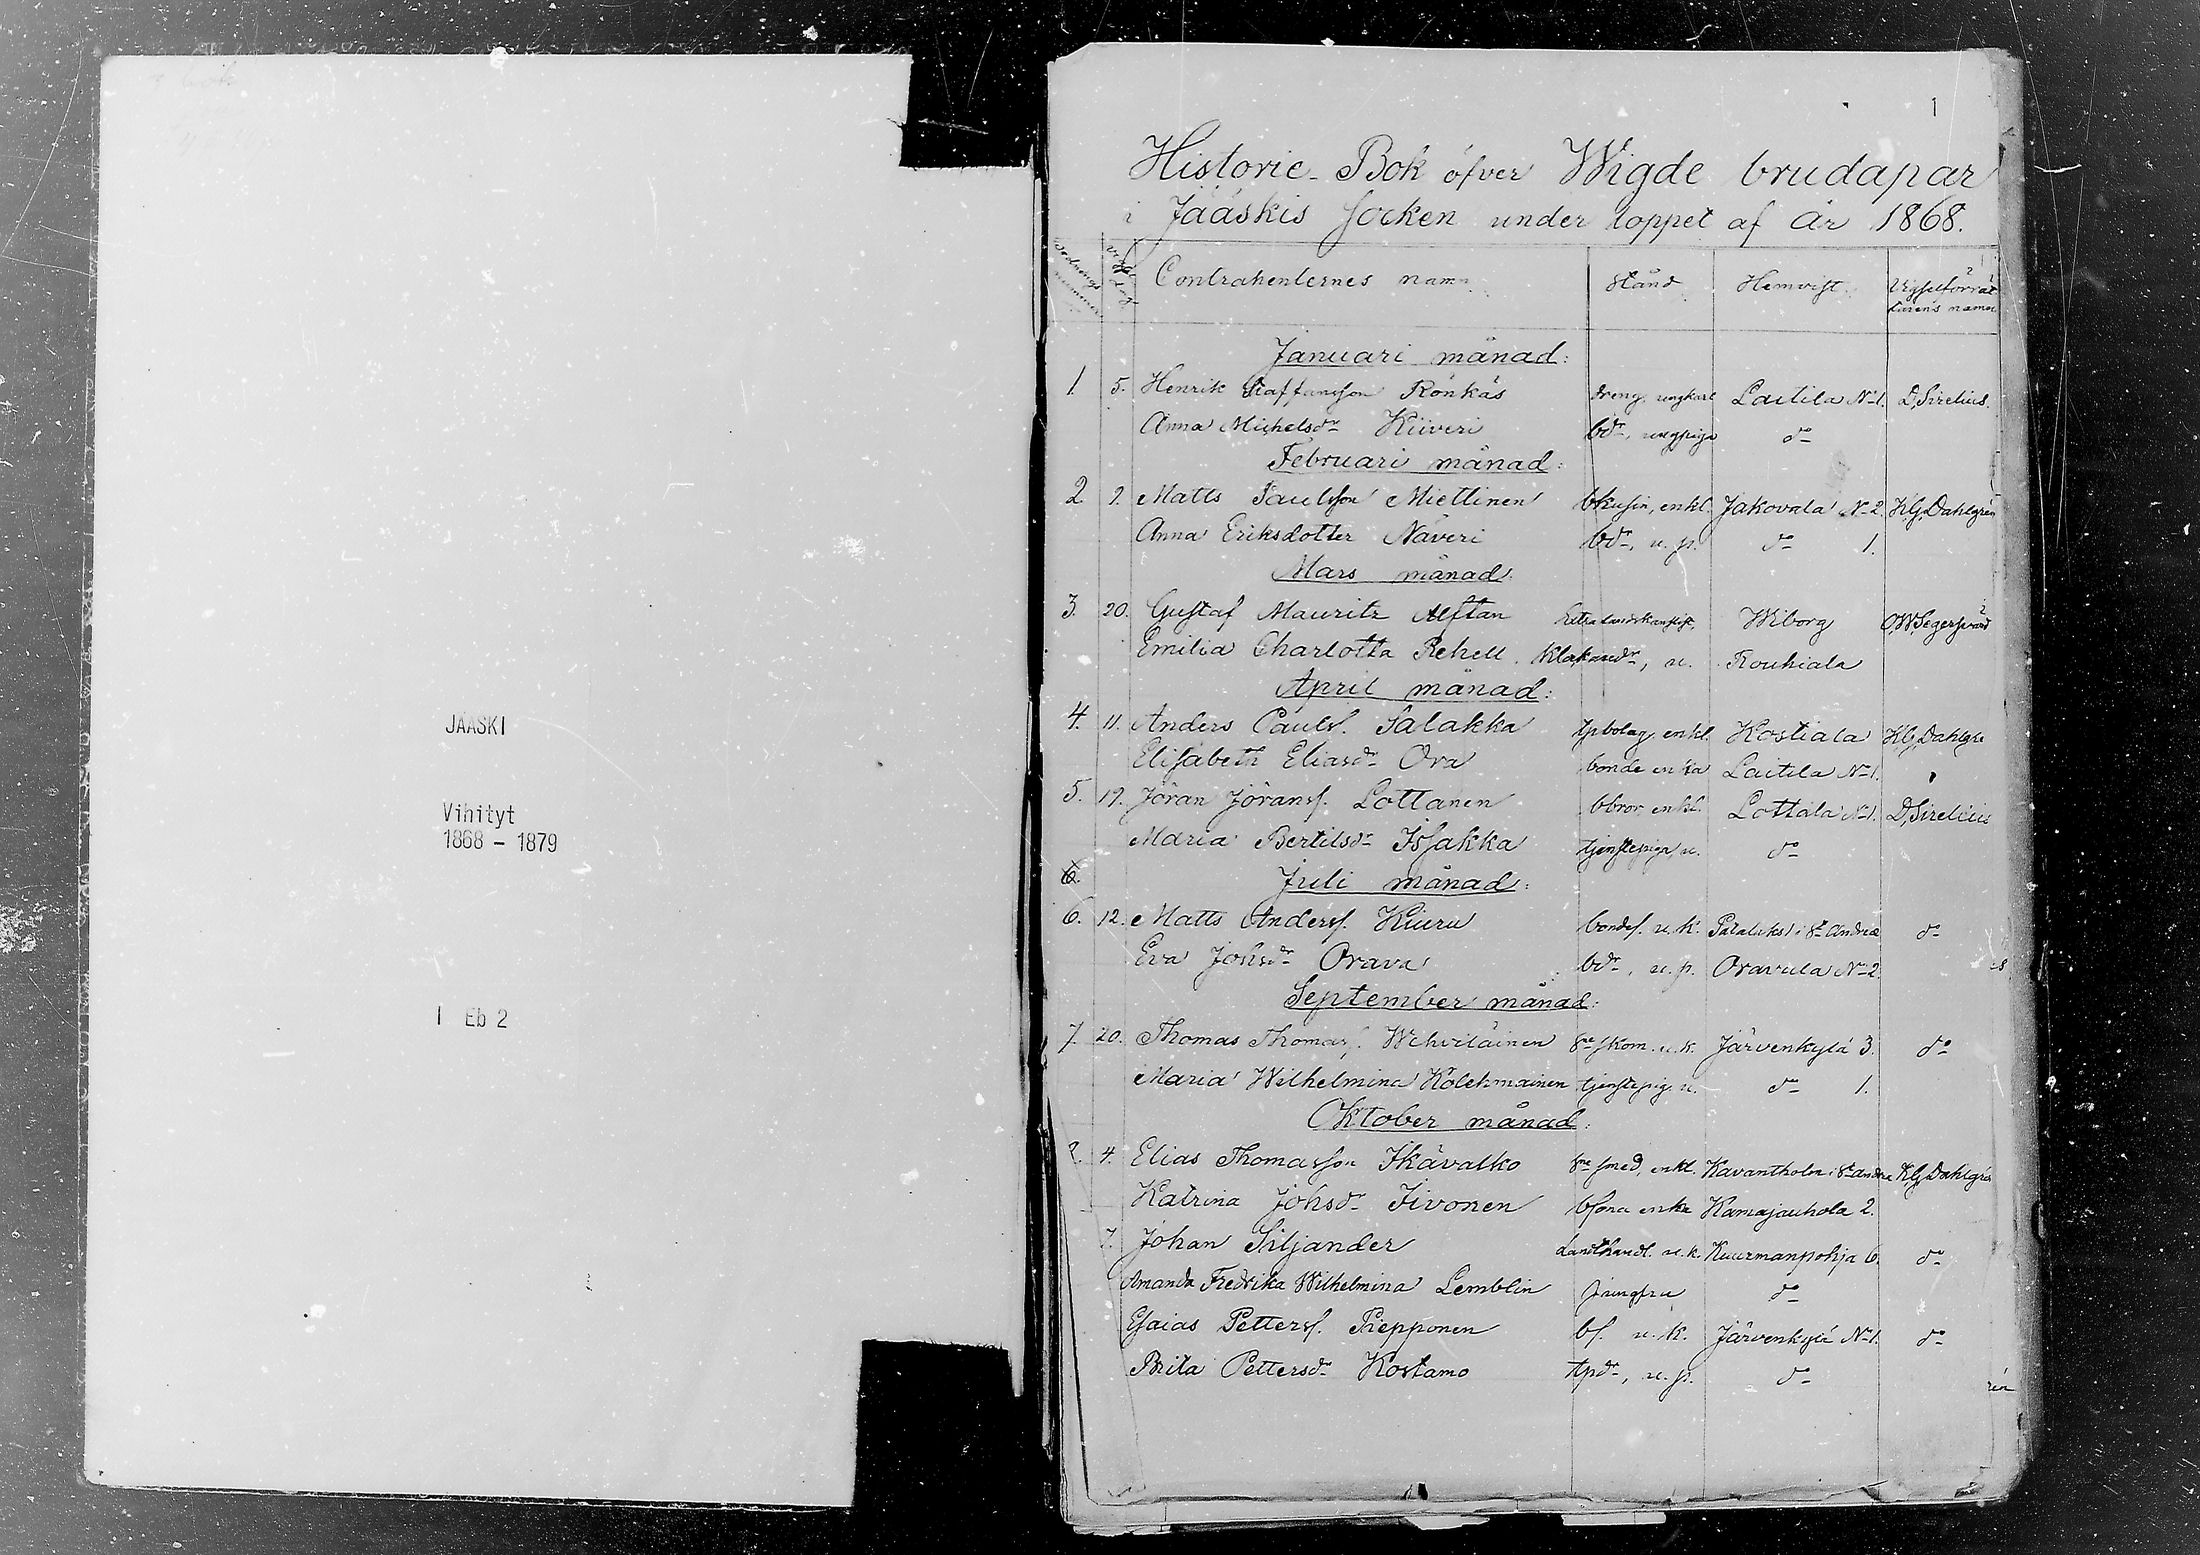 JÄÄSKI
Vihityt
1868 - 1879
I Eb 2
1
Historie-Bok öfver Wigde brudapar
i Jääskis Socken under loppet af år 1868.
Contrahenternes namn Stånd Hemvist Vigselförrät-
tarens namn
Januari månad:
1. 5. Henrik Staffansson Rönkäs dreng, ungkarl Laitila No 1. D, Sirelius.
Anna Michelsdr Kiiveri bdr, ungpiga do
Februari månad:
2 9. Matts Paulsson Miettinen bkusin, enkl. Jakovala No 2. K,G, Dahlgrén
Anna Eriksdotter Näveri bdr, u. p. do 1.
Mars månad
3. 20. Gustaf Mauritz Alftan Extra landskanslist, Wiborg O,W, Segersvärd
Emilia Charlotta Rehell. Klokaredr, u. Rouhiala
April månad:
4. 11. Anders Paulss. Salakka bolag. enkl. Kostiala K,G, Dahlgre
Elisabeth Eliasdr Ora bonde enka Laitila No 1.
5. 19. Jöran Jöranss. Lottanen bbror, enkl. Lottala No 1. D, Sirelius
Maria Bertilsdr Issakka tjenstepiga, u. do
6. Juli månad:
6. 12. Matts Anderss. Kiuru bondes. u. k. St Andreæ do
Eva Johsdr Orava bdr, u. p. Oravala No 2
September månad:
7. 20. Thomas Thomass. Wihviläinen skom. u. k. Järvenkylä 3. do
Maria Wilhelmina Kolehmainen tjenstepig. u. do 1.
Oktober månad:
4. Elias Thomasson Ikävalko smed, enkl. Kavantholm i St Andreæ K,G, Dahlgrén
Katrina Johsdr Iivonen bsona enka Kamajauhola 2.
7. Johan Siljander Landthandl. u. k. Kuurmanpohja 6. do
Amanda Fredrika Wilhelmina Lemblin jungfru do
Esaias Petterss. Piepponen bs. u. k. Järvenkylä No 1. do
Brita Pettersdr Kostamo tpdr, u. p. do